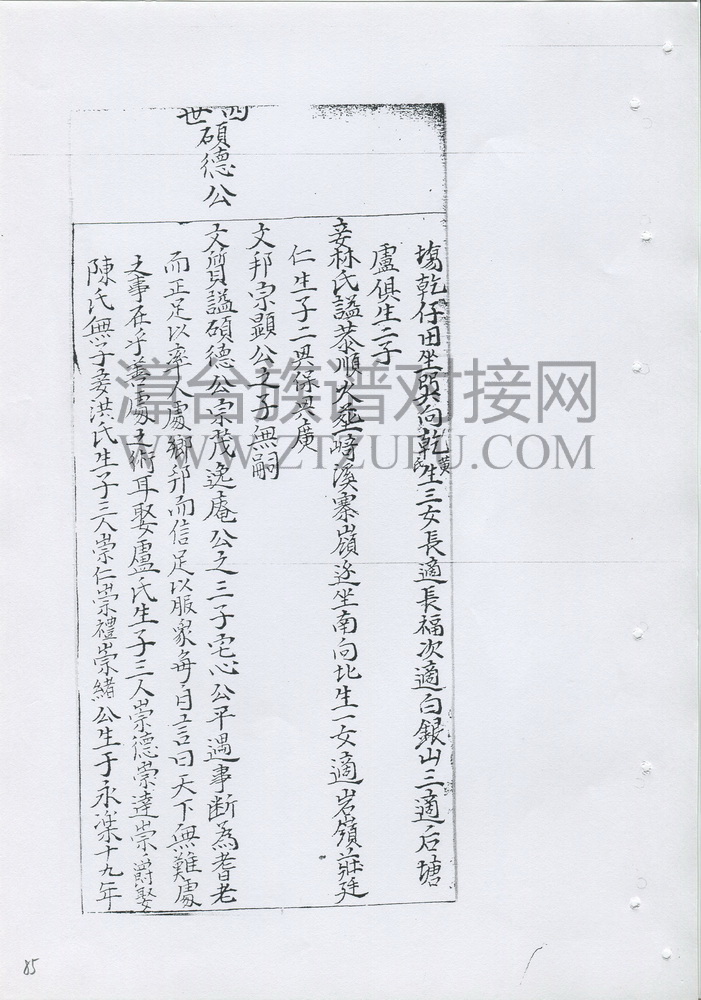 四世碩德公
塲乾仔田坐巽向乾黃氏生三女長適長福次適白銀山三適后塘
盧俱生二子
妾林氏謚恭順火葬崎溪寨嶺迯坐南向北生一女適岩嶺莊廷
仁生子二興保興廣
文邦宗顯公之子無嗣
文質謚碩德公宗茂逸庵公之三子宅心公平遇事斷為耆老
而正足以率人處鄉邦而信足以服衆每自言曰天下無難處
之事在乎善處之術耳娶盧氏生子三人崇德崇達崇爵娶
陳氏無子妾洪氏生子三人崇仁崇禮崇緒公生于永楽十九年
漳台族谱对接网
WWW.ZTZUPU.COM
85